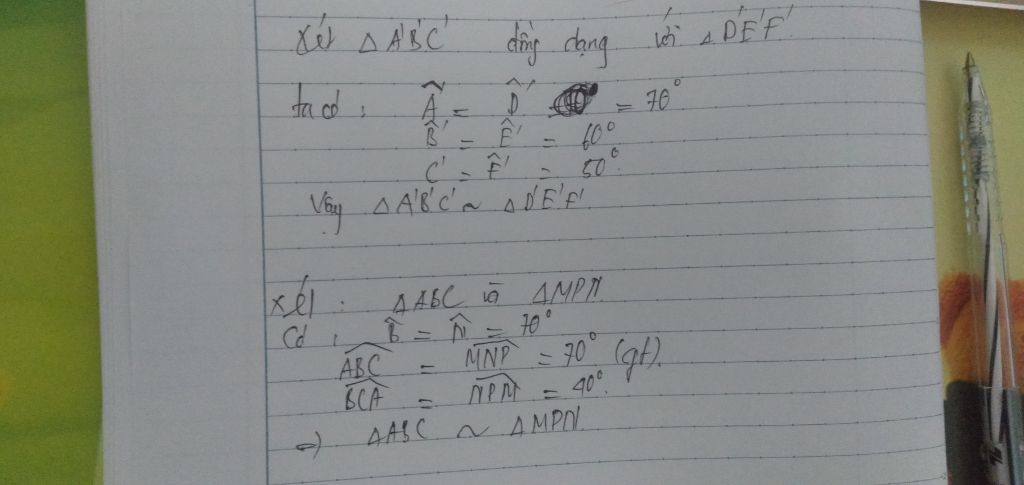 Xét △A'B'C' đồng dạng với △D'E'F'
ta có : Â' = D̂' = 70°
B̂' = Ê' = 60°
C' = F̂' = 50°.
Vậy △A'B'C' ~ △D'E'F'.
Xét : △ABC và △MPN
Có : B̂ = N̂ = 70°
ABC = MNP = 70° (gt).
BCA = NPM = 40°.
⇒ △ABC ~ △MPN